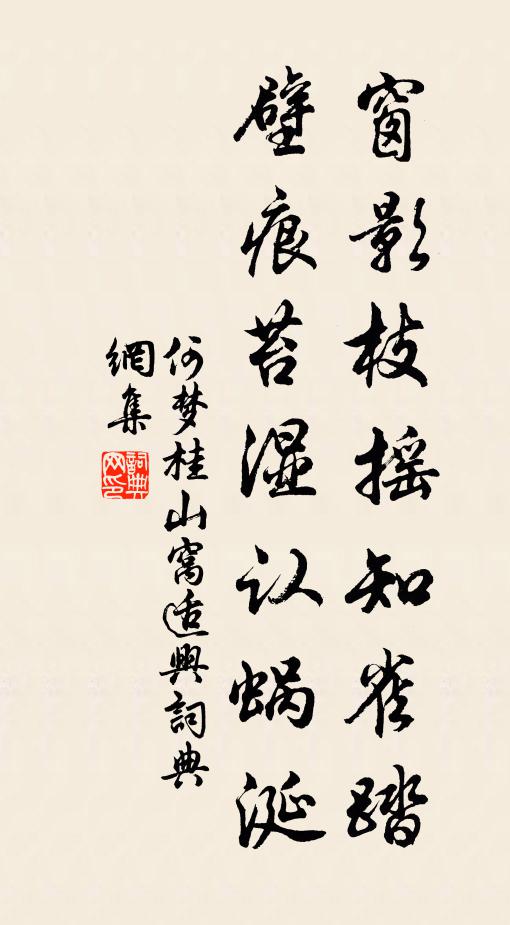 窗影枝摇知雀踏
壁痕苔湿认蜗涎
何梦桂山窝适興詞典
網集
詞典网印